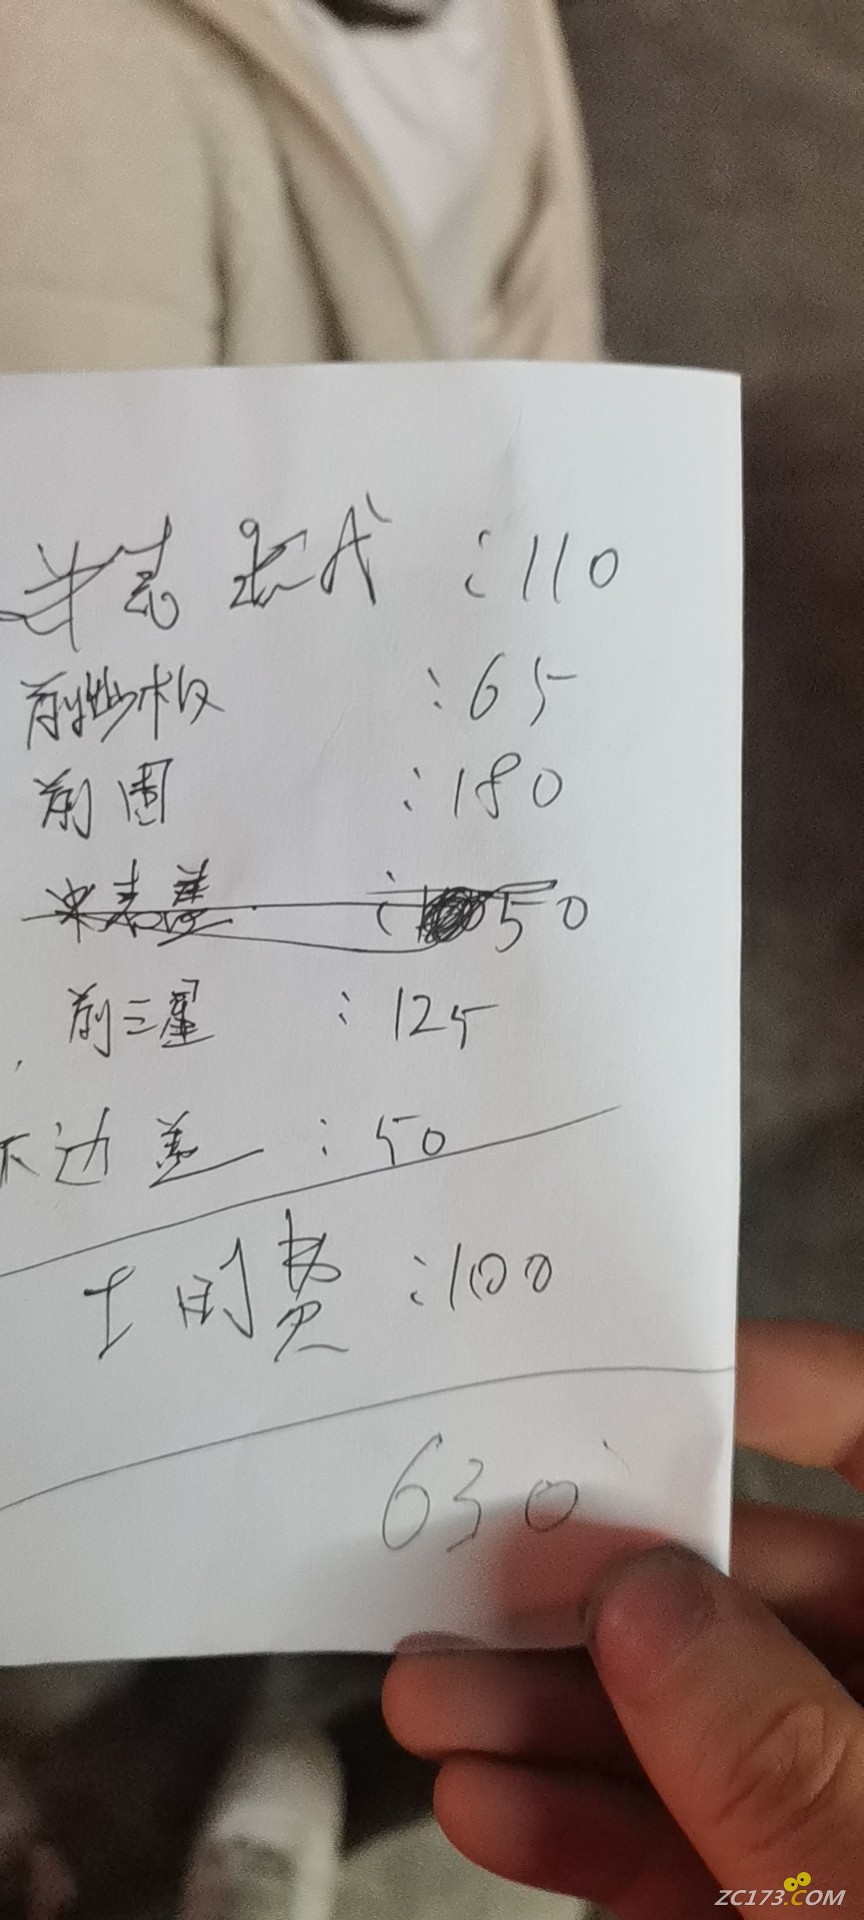 :110
前挡板 :65
前围 :180
米表盖 : 50
前三星 : 125
边盖 : 50
工时费 :100
630
ZC173.COM